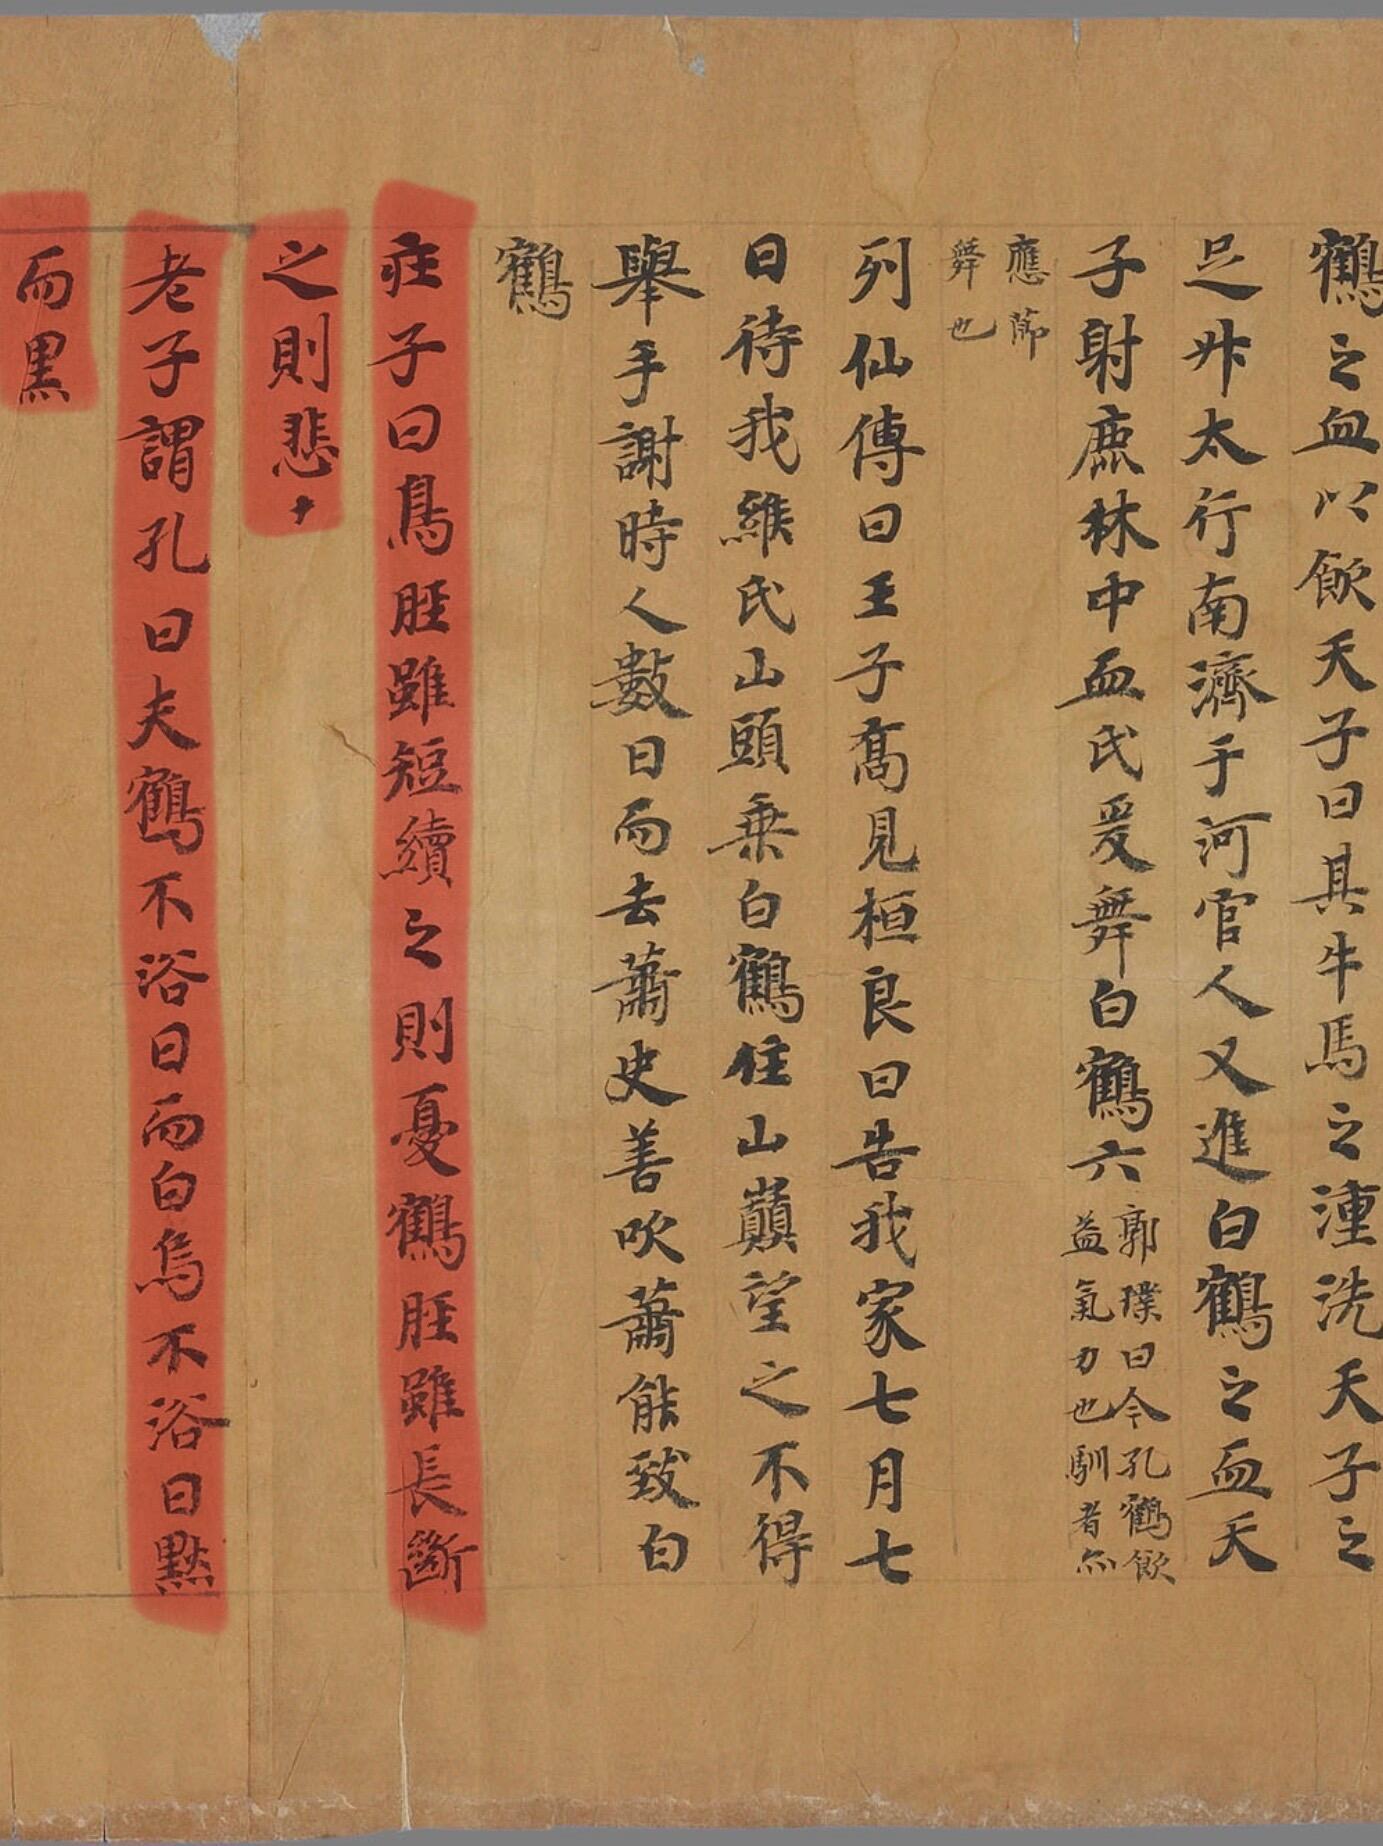 鶴之血以飲天子曰具牛馬之湩洗天子之
足升太行南濟于河官人又進白鶴之血天
子射鹿林中血氏爰舞白鶴六
郭璞曰今孔鶴飲
益氣力也馴者亦
應節
舞也
列仙傳曰王子喬見桓良曰告我家七月七
日待我緱氏山頭乗白鶴住山巔望之不得
舉手謝時人數日而去蕭史善吹蕭能致白
鶴
莊子曰鳥脛雖短續之則憂鶴脛雖長斷
之則悲
老子謂孔曰夫鶴不浴日而白烏不浴日黙
而黒